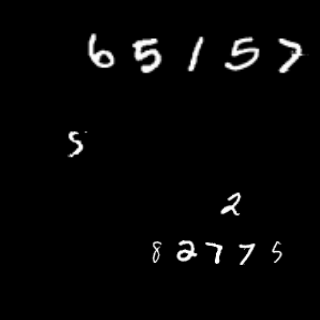 65157
5
2
82775